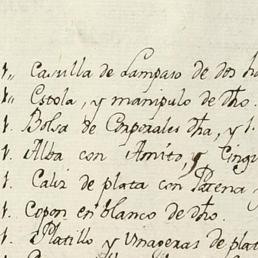 1,, Casulla de Lampaso de dos
1,, Estola, y manipulo de dho.
1. Bolsa de Corporales dha, y 1.
1. Alba con Amito, y Cing
1. Caliz de plata con Patena y
1. Copon en blanco de dho.
1. Platillo y Vinageras de plat